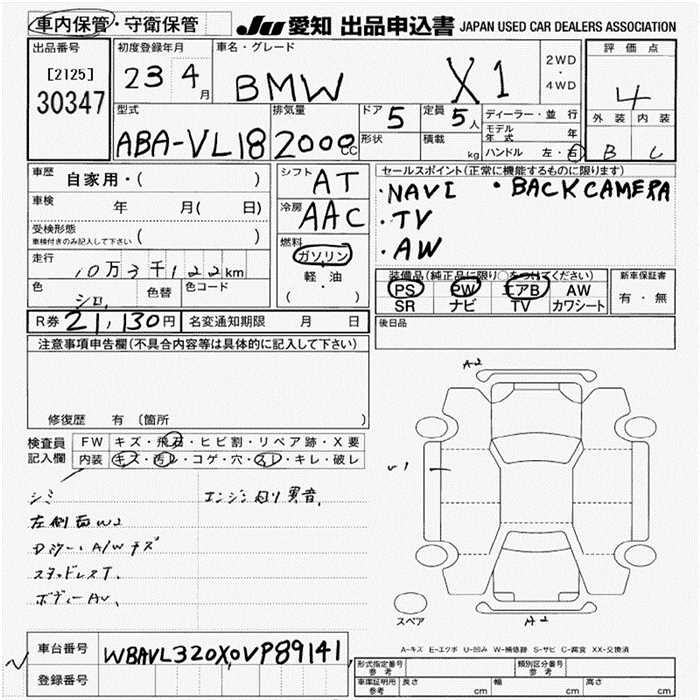 車内保管・守衛保管 JU 愛知 出品申込書 JAPAN USED CAR DEALERS ASSOCIATION
出品番号 初度登録年月 車名・グレード 2WD・4WD 評価点
[2125] 30347 23 4月 BMW X1 4
型式 排気量 ドア 5 定員 5人 ディーラー・並行 外装 内装
ABA-VL18 2000cc 形状 積載 kg モデル年式 年
ハンドル 左・右 B C
車歴 自家用・( ) シフト AT セールスポイント(正常に機能するものに限ります)
車検 年 月( 日) 冷房 AAC ・NAVI ・BACK CAMERA
受検形態 車検付きのみ記入して下さい ( ) ・TV
燃料 ガソリン・軽油・( ) ・AW
走行 10万3千122km 装備品(純正品に限り○をつけてください) 新車保証書
色 シロ 色替 色コード PS PW エアB AW 有・無
SR ナビ TV カワシート
R券 21,130円 名変通知期限 月 日 後日品
注意事項申告欄(不具合内容等は具体的に記入して下さい)
修復歴 有 〔箇所 〕
検査員記入欄 FW キズ・飛石・ヒビ割・リペア跡・X要
内装 キズ・汚レ・コゲ・穴・スレ・キレ・破レ
シミ エンジン回り異音
左側面W2
A/Wキズ
スタッドレスT.
A2
A2
スペア
A-キズ E-エクボ U-凹み W-補修跡 S-サビ C-腐食 XX-交換済
車台番号 WBAVL320X0VP89141
登録番号
形式指定番号 参考 類別区分番号 参考
車庫証明用 参考 長さ cm 幅 cm 高さ cm